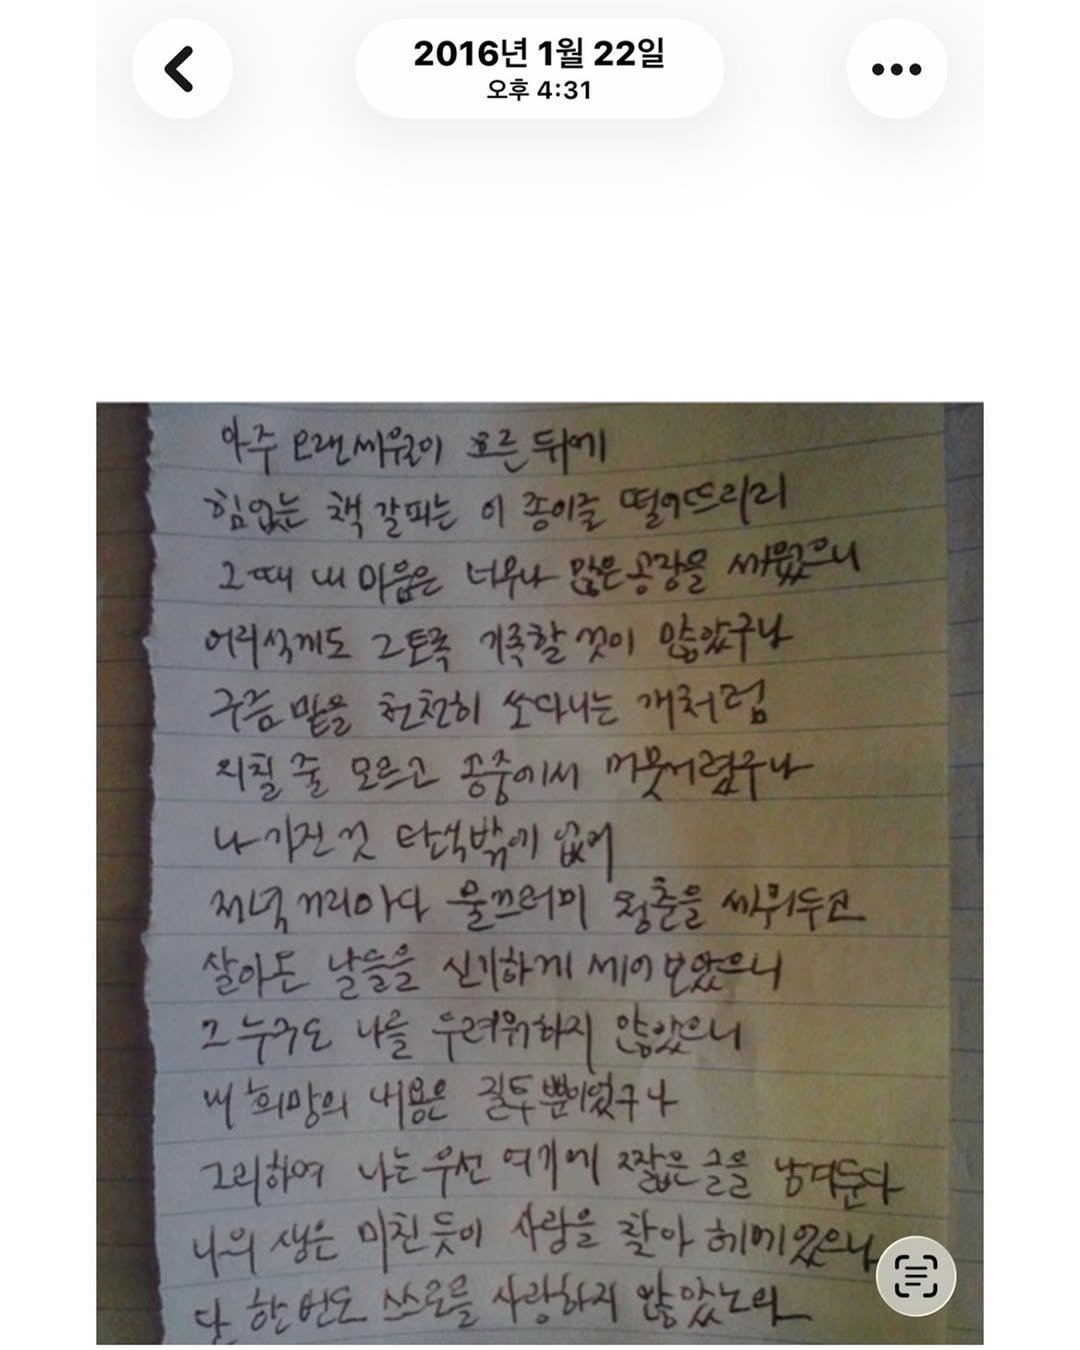 2016년 1월 22일
오후 4:31
아주 오랜 세월이 흐른 뒤에
힘없는 책 갈피는 이 종이를 떨어뜨리리
그때 내 마음은 너무나 많은 공장을 세웠으니
어리석게도 그토록 기록할 것이 많았구나
구름 밑을 천천히 쏘다니는 개처럼
지칠 줄 모르고 공중에서 머뭇거렸구나
나 가진 것 탄식밖에 없어
저녁 거리마다 물끄러미 청춘을 세워두고
살아온 날들을 신기하게 세어 보았으니
그 누구도 나를 두려워하지 않았으니
내 희망의 내용은 질투뿐이었구나
그리하여 나는 우선 여기에 짧은 글을 남겨둔다
나의 생은 미친 듯이 사랑을 찾아 헤매었으나
단 한 번도 스스로를 사랑하지 않았노라